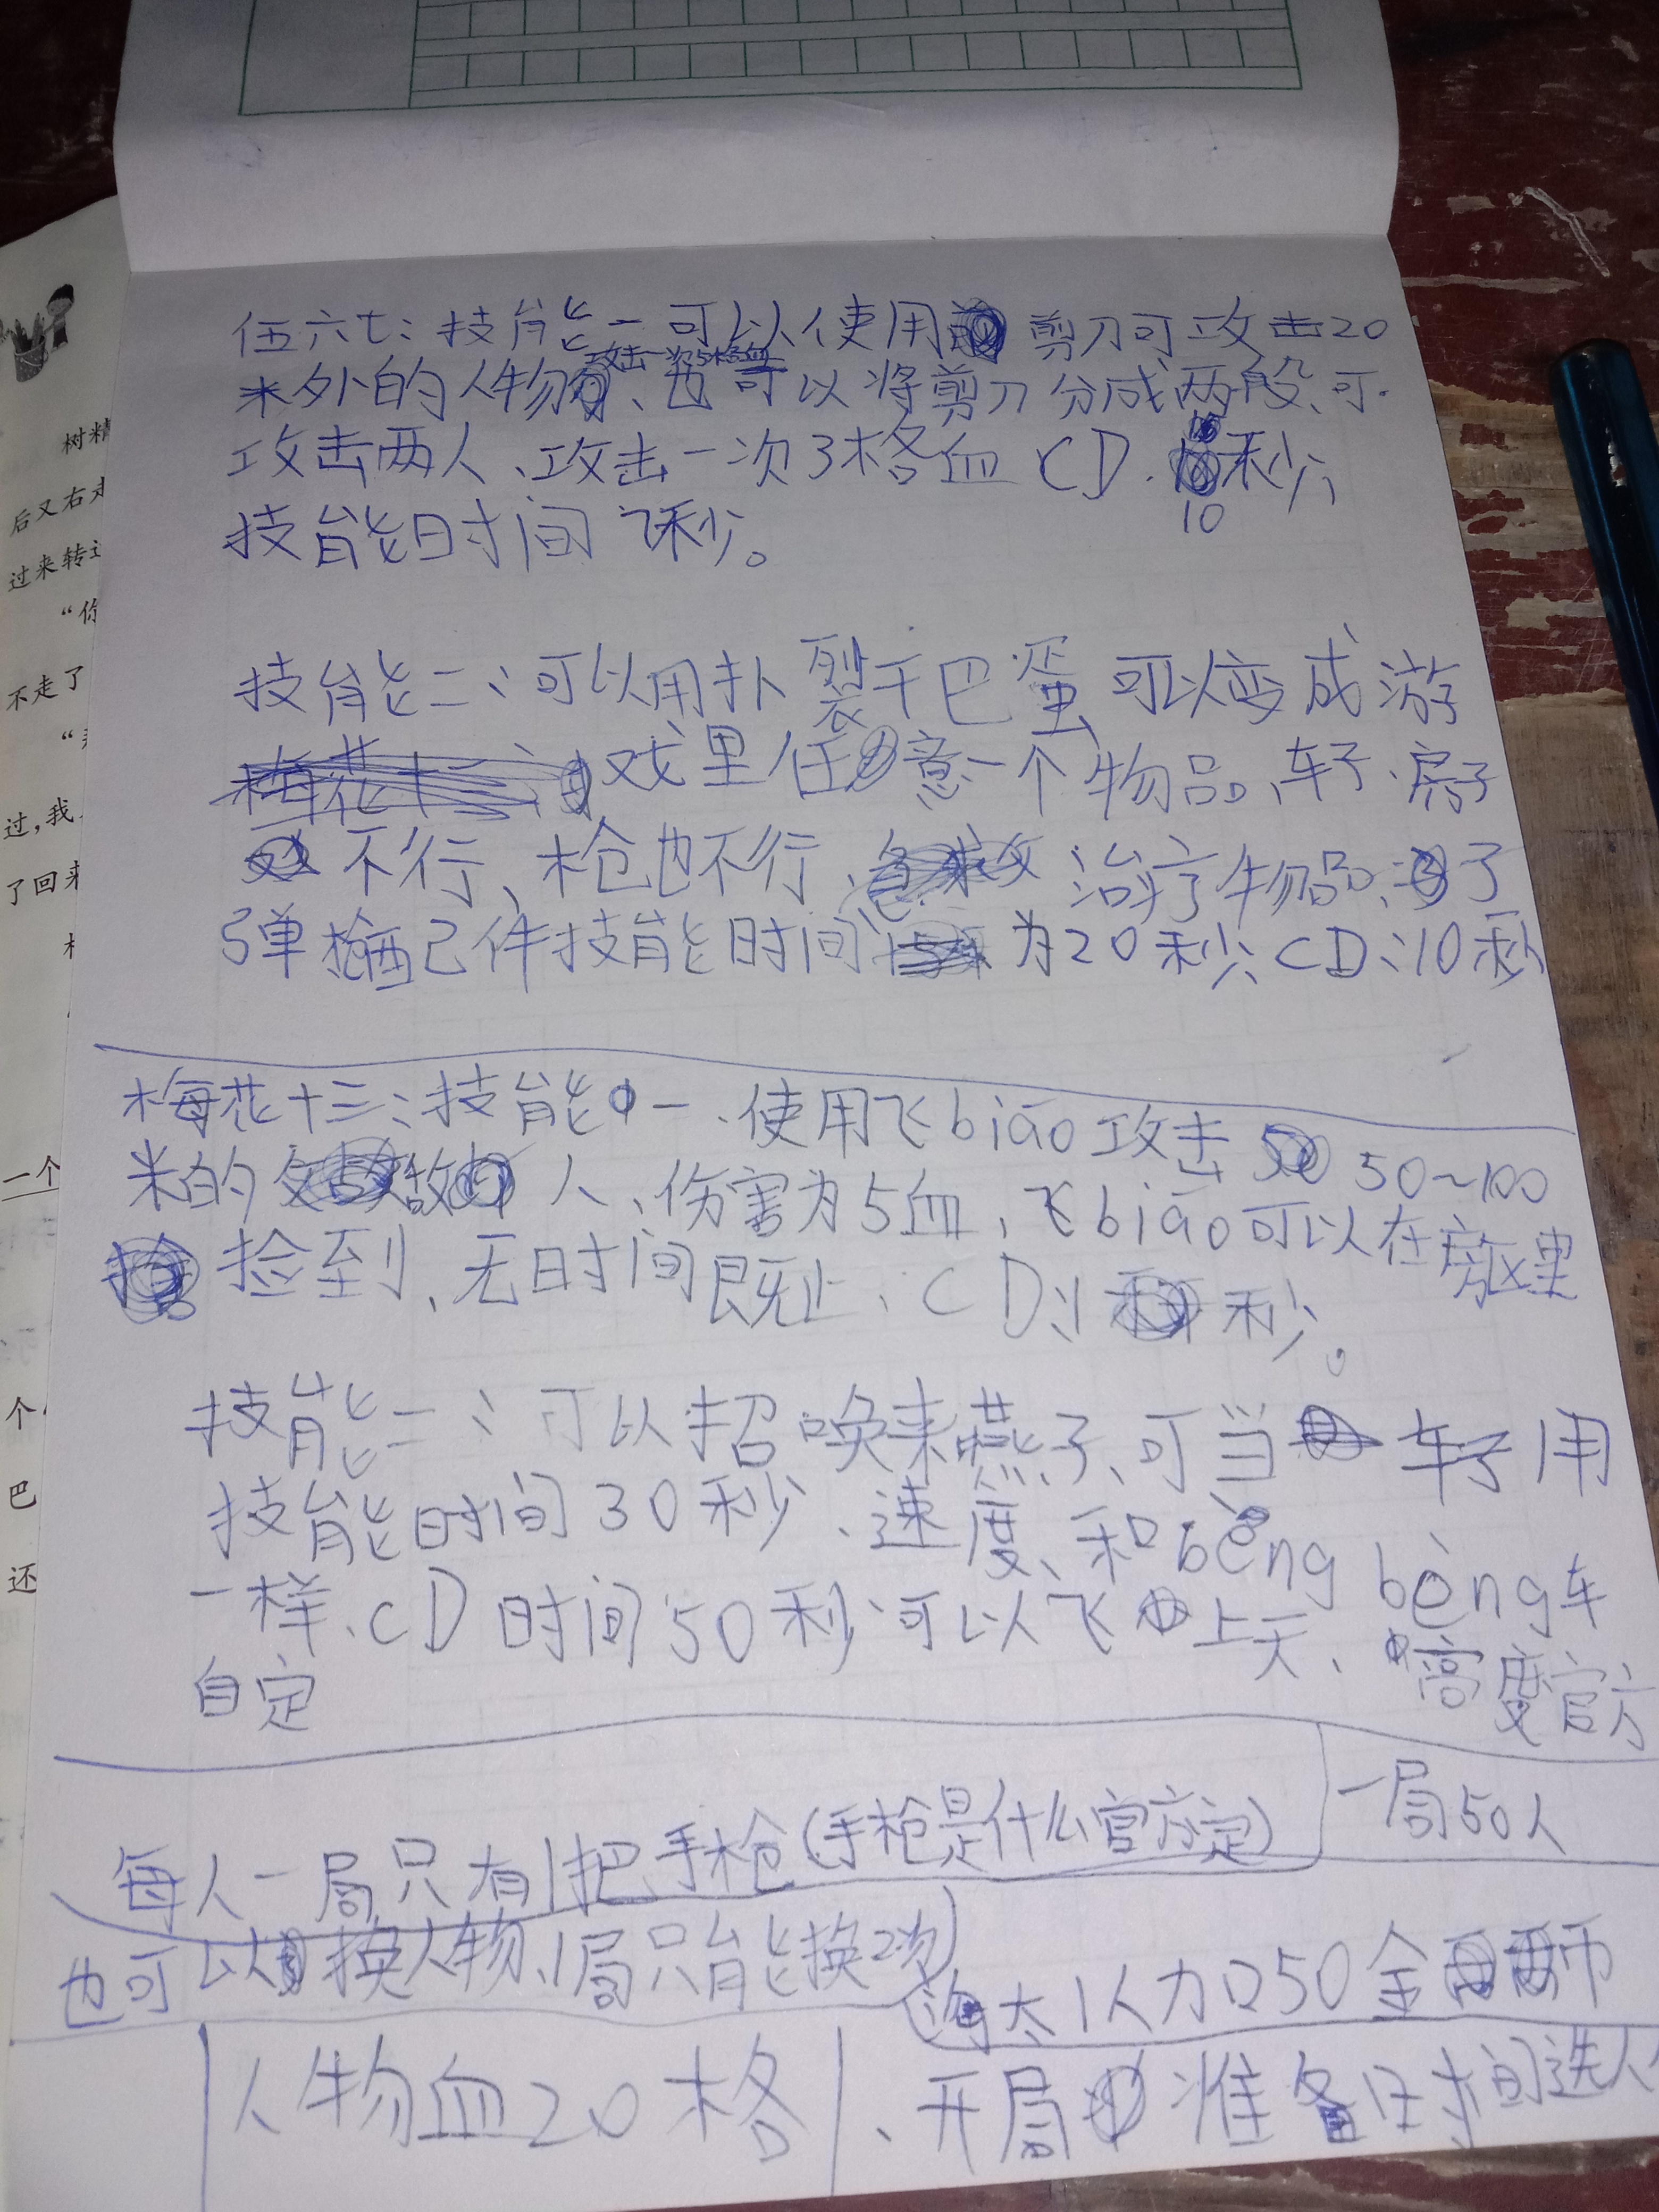 伍六七:技能一可以使用剪刀可攻击20
攻击一次5格血
米外的人物、也可以将剪刀分成两段、可
攻击两人、攻击一次3格血CD.秒,
10
技能时间飞秒。
技能二:可以用扑裂干巴蛋可以变成游
戏里任意一个物品、车子、房子
不行、枪也不行、治疗物品、了
弹枪配件技能时间为20秒、CD:10秒
梅花十三:技能一、使用飞biāo攻击50~100
米的人、伤害为5血、飞biāo可以在房区里
捡到、无时间既止、CD:1秒。
技能二:可以招唤来燕子、可当车子用
技能时间30秒、速度、和bèng bèng车
一样、CD时间50秒可以飞上天、高度官方
自定
每人一局只有1把手枪(手枪是什么官方定)
一局50人
也可以换人物、1局只能换2次
淘太1人加50金币
人物血20格
、开局准备时间选人
树精
后又右走
过来转
“你
不走了
过,我
了回来
一个
个
巴
还